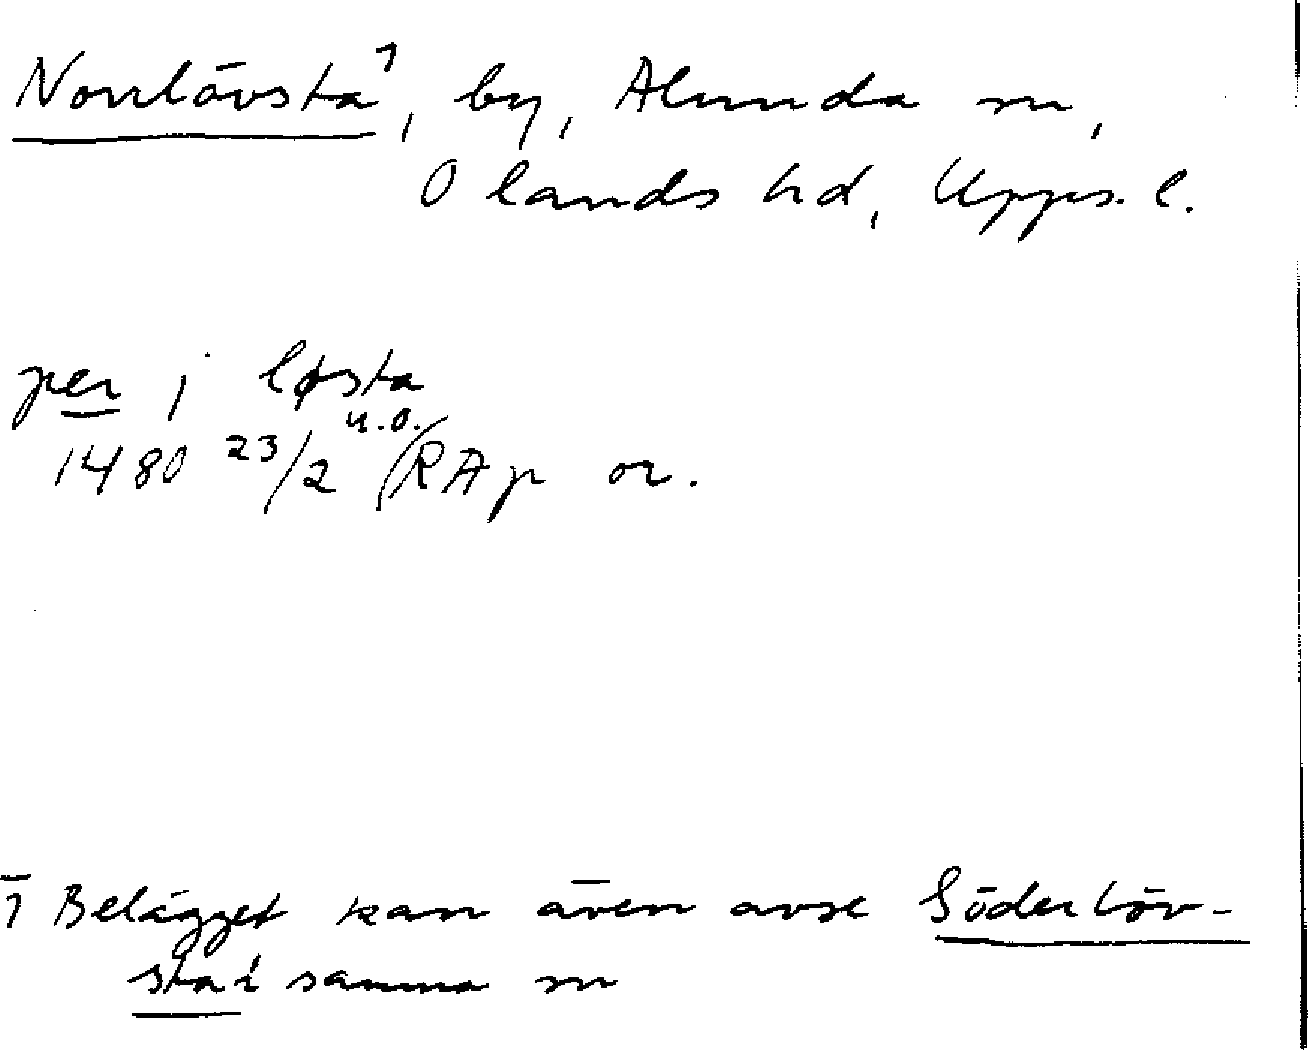 Norrlövsta¹, by, Alunda sn,
Olands hd, Upps. l.
per j løsta
u.o.
1480 23/2 (RAp or.
1 Belägget kan även avse Söderlöv-
sta i samma sn